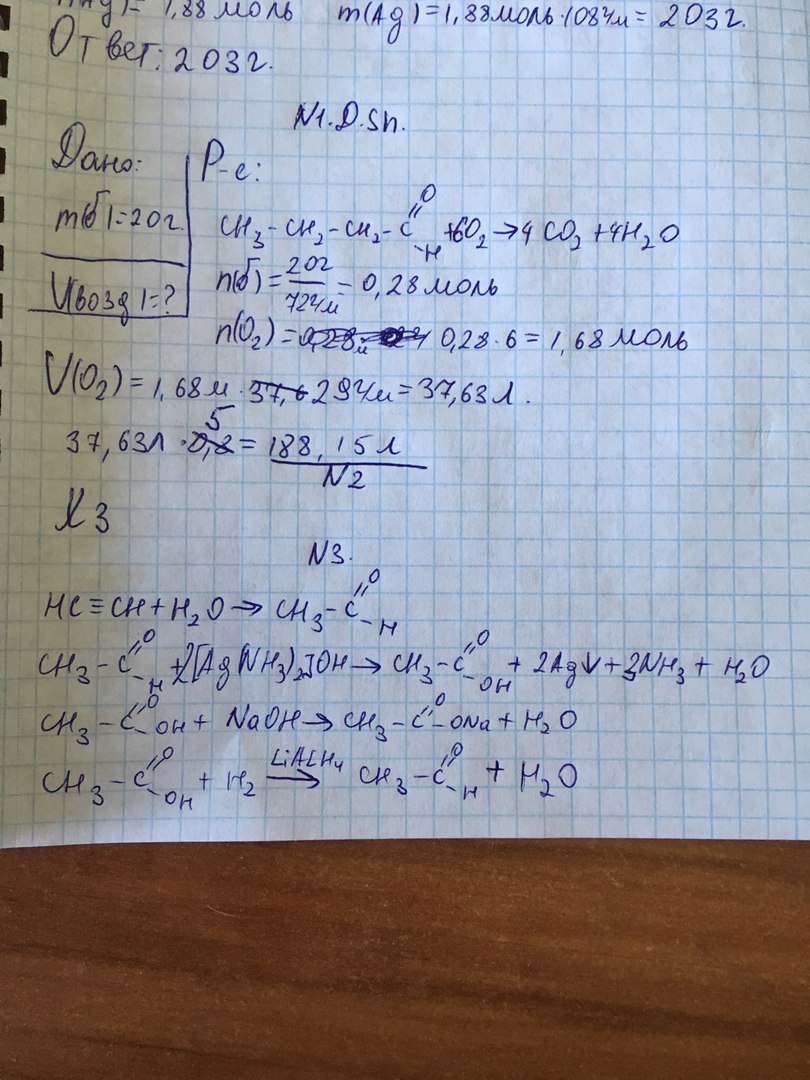 1,88 моль m(Ag)=1,88моль·108г/м= 203г.
Ответ: 203г.
N1. D.Sh.
Дано:
Р-е:
m(б)=20г
CH3-CH2-CH2-C=O-H+6O2→4CO2+4H2O
Vвозд)=?
n(б)=20г/72г/м=0,28моль
n(O2)= 0,28·6=1,68моль
V(O2)=1,68м· 29г/м=37,63л.
37,63л·5=188,15л
N2
X3
N3.
HC≡CH+H2O→CH3-C=O-H
CH3-C=O-H+2[Ag(NH3)2]OH→CH3-C=O-OH+2Ag↓+3NH3+H2O
CH3-C=O-OH+NaOH→CH3-C=O-ONa+H2O
CH3-C=O-OH+H2 LiAlH4→ CH3-C=O-H+H2O